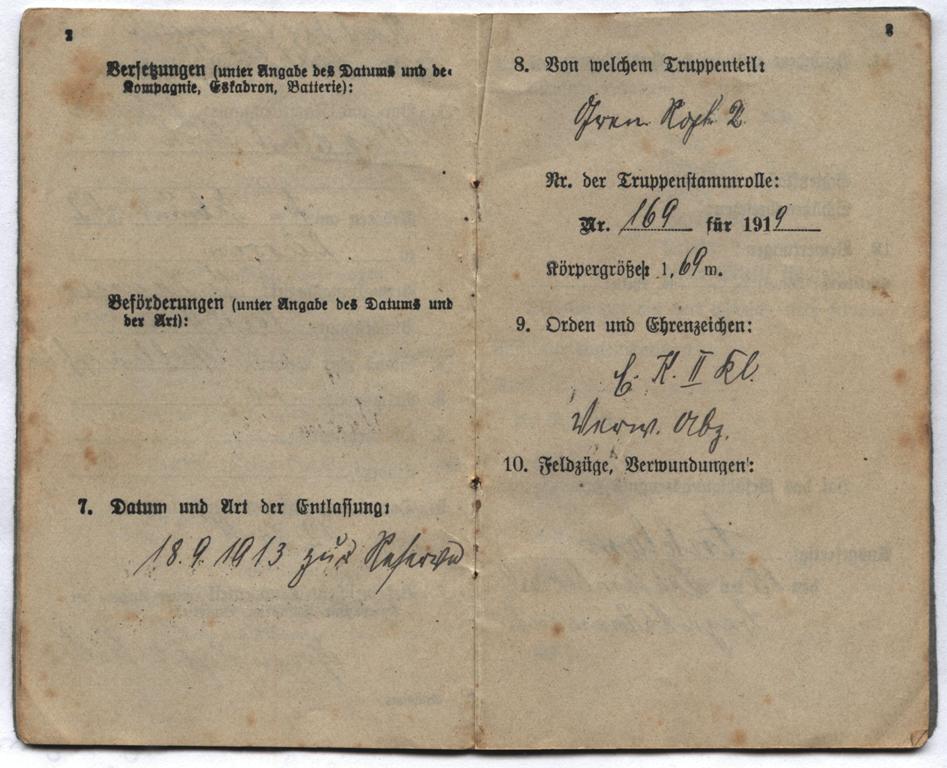 2
Versetzungen (unter Angabe des Datums und de-
Kompagnie, Eskadron, Batterie):
Beförderungen (unter Angabe des Datums und
der Art):
7. Datum und Art der Entlassung:
18.9.1913 zur Reserve
3
8. Von welchem Truppenteil:
Gren. Kopf. 2
Nr. der Truppenstammrolle:
Nr. 169 für 1919
Körpergröße: 1,69 m.
9. Orden und Ehrenzeichen:
E. K. II Kl.
Verw. Abz.
10. Feldzüge, Verwundungen: